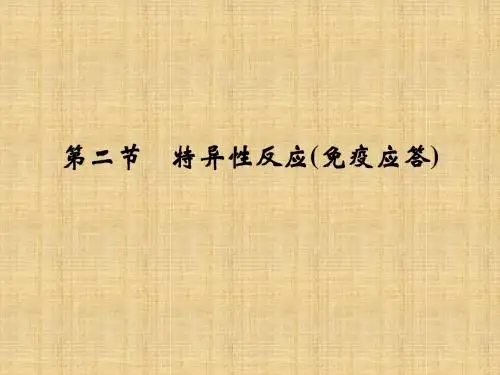 第二节　特异性反应(免疫应答)